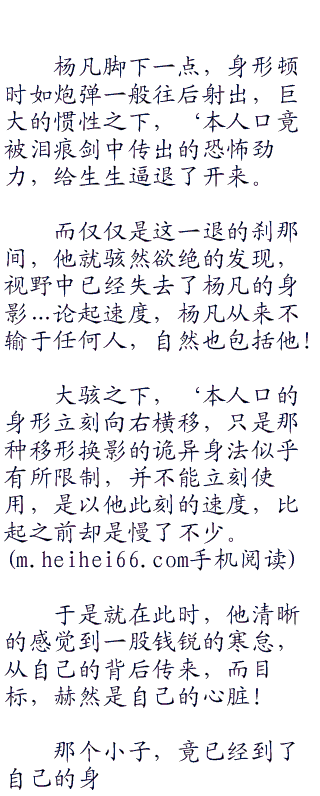 杨凡脚下一点，身形顿
时如炮弹一般往后射出，巨
大的惯性之下，‘本人口竟
被泪痕剑中传出的恐怖劲
力，给生生逼退了开来。
而仅仅是这一退的刹那
间，他就骇然欲绝的发现，
视野中已经失去了杨凡的身
影…论起速度，杨凡从来不
输于任何人，自然也包括他！
大骇之下，‘本人口的
身形立刻向右横移，只是那
种移形换影的诡异身法似乎
有所限制，并不能立刻使
用，是以他此刻的速度，比
起之前却是慢了不少。
(m.heihei66.com手机阅读)
于是就在此时，他清晰
的感觉到一股钱锐的寒怠，
从自己的背后传来，而目
标，赫然是自己的心脏！
那个小子，竟已经到了
自己的身